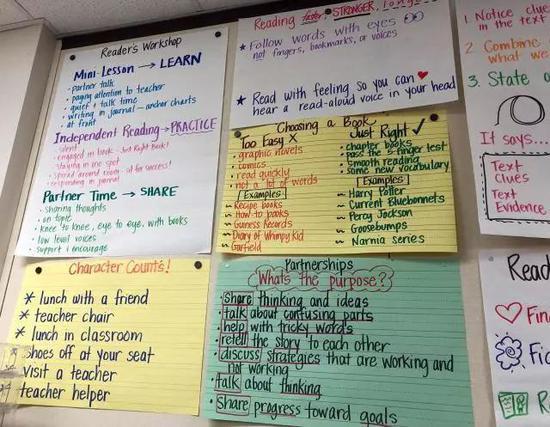 Reader's Workshop
Mini-Lesson → LEARN
• partner talk
• paying attention to teacher
• quiet + talk time
• writing in journal - anchor charts
• at front
Independent Reading → PRACTICE
• silent
• engaged in book - Just Right Book!
• staying in one spot
• spread around room - all for success!
• responding in journal
Partner Time → SHARE
• sharing thoughts
• on topic
• Knee to knee, eye to eye, with books
• low level voices
• support & encourage
Reading faster, STRONGER, long
★ Follow words with eyes
not fingers, bookmarks, or voices
★ Read with feeling so you can
hear a read-aloud voice in your head
Choosing a Book
Too Easy X
• graphic novels
• comics
• read quickly
• not a lot of words
Examples
~ Recipe books
~ How to books
~ Guness Records
~ Diary of Whimpy Kid
~ Garfield
Just Right ✓
• chapter books
• pass the 5-finger test
• smooth reading
• some new vocabulary
Examples
~ Harry Potter
~ Current Bluebonnets
~ Percy Jackson
~ Goosebumps
~ Narnia series
Character Counts!
* lunch with a friend
* teacher chair
* lunch in classroom
* shoes off at your seat
* visit a teacher
* teacher helper
Partnerships
What's the purpose?
• share thinking and ideas
• talk about confusing parts
• help with tricky words
• retell the story to each other
• discuss strategies that are working and
not working
• talk about thinking
• share progress toward goals
1. Notice clue
in the text
2. Combine
what we
3. State a
It says...
Text
Clues
Text
Evidence
Read
Fin
Fic
R